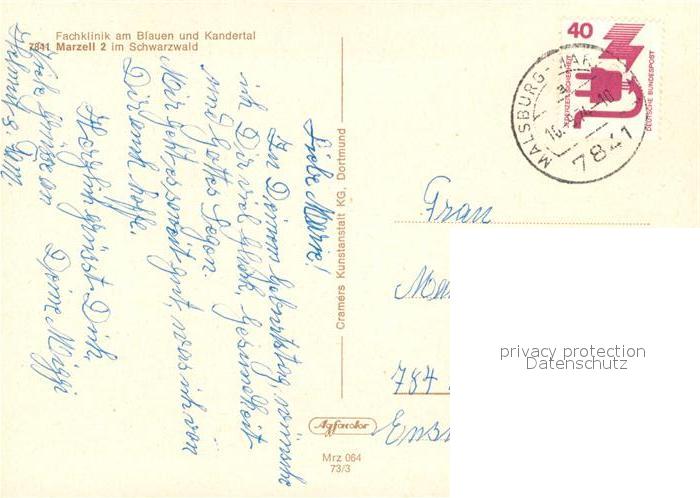 Fachklinik am Blauen und Kandertal
7841 Marzell 2 im Schwarzwald
Liebe Marie!
Zu Deinem Geburtstag wünsche
ich Dir viel Glück, Gesundheit
und Gottes Segen.
Mir geht es soweit gut, was ich von
Dir auch hoffe.
Herzlich grüsst Dich,
Deine Miggi
Viele Grüsse an
Helmut u. Fam.
Cramers Kunstanstalt KG, Dortmund
Agfacolor
Mrz 064
73/3
40
DEUTSCHE BUNDESPOST
MALSBURG-MAR
7841
Frau
Ma
784
privacy protection
Datenschutz